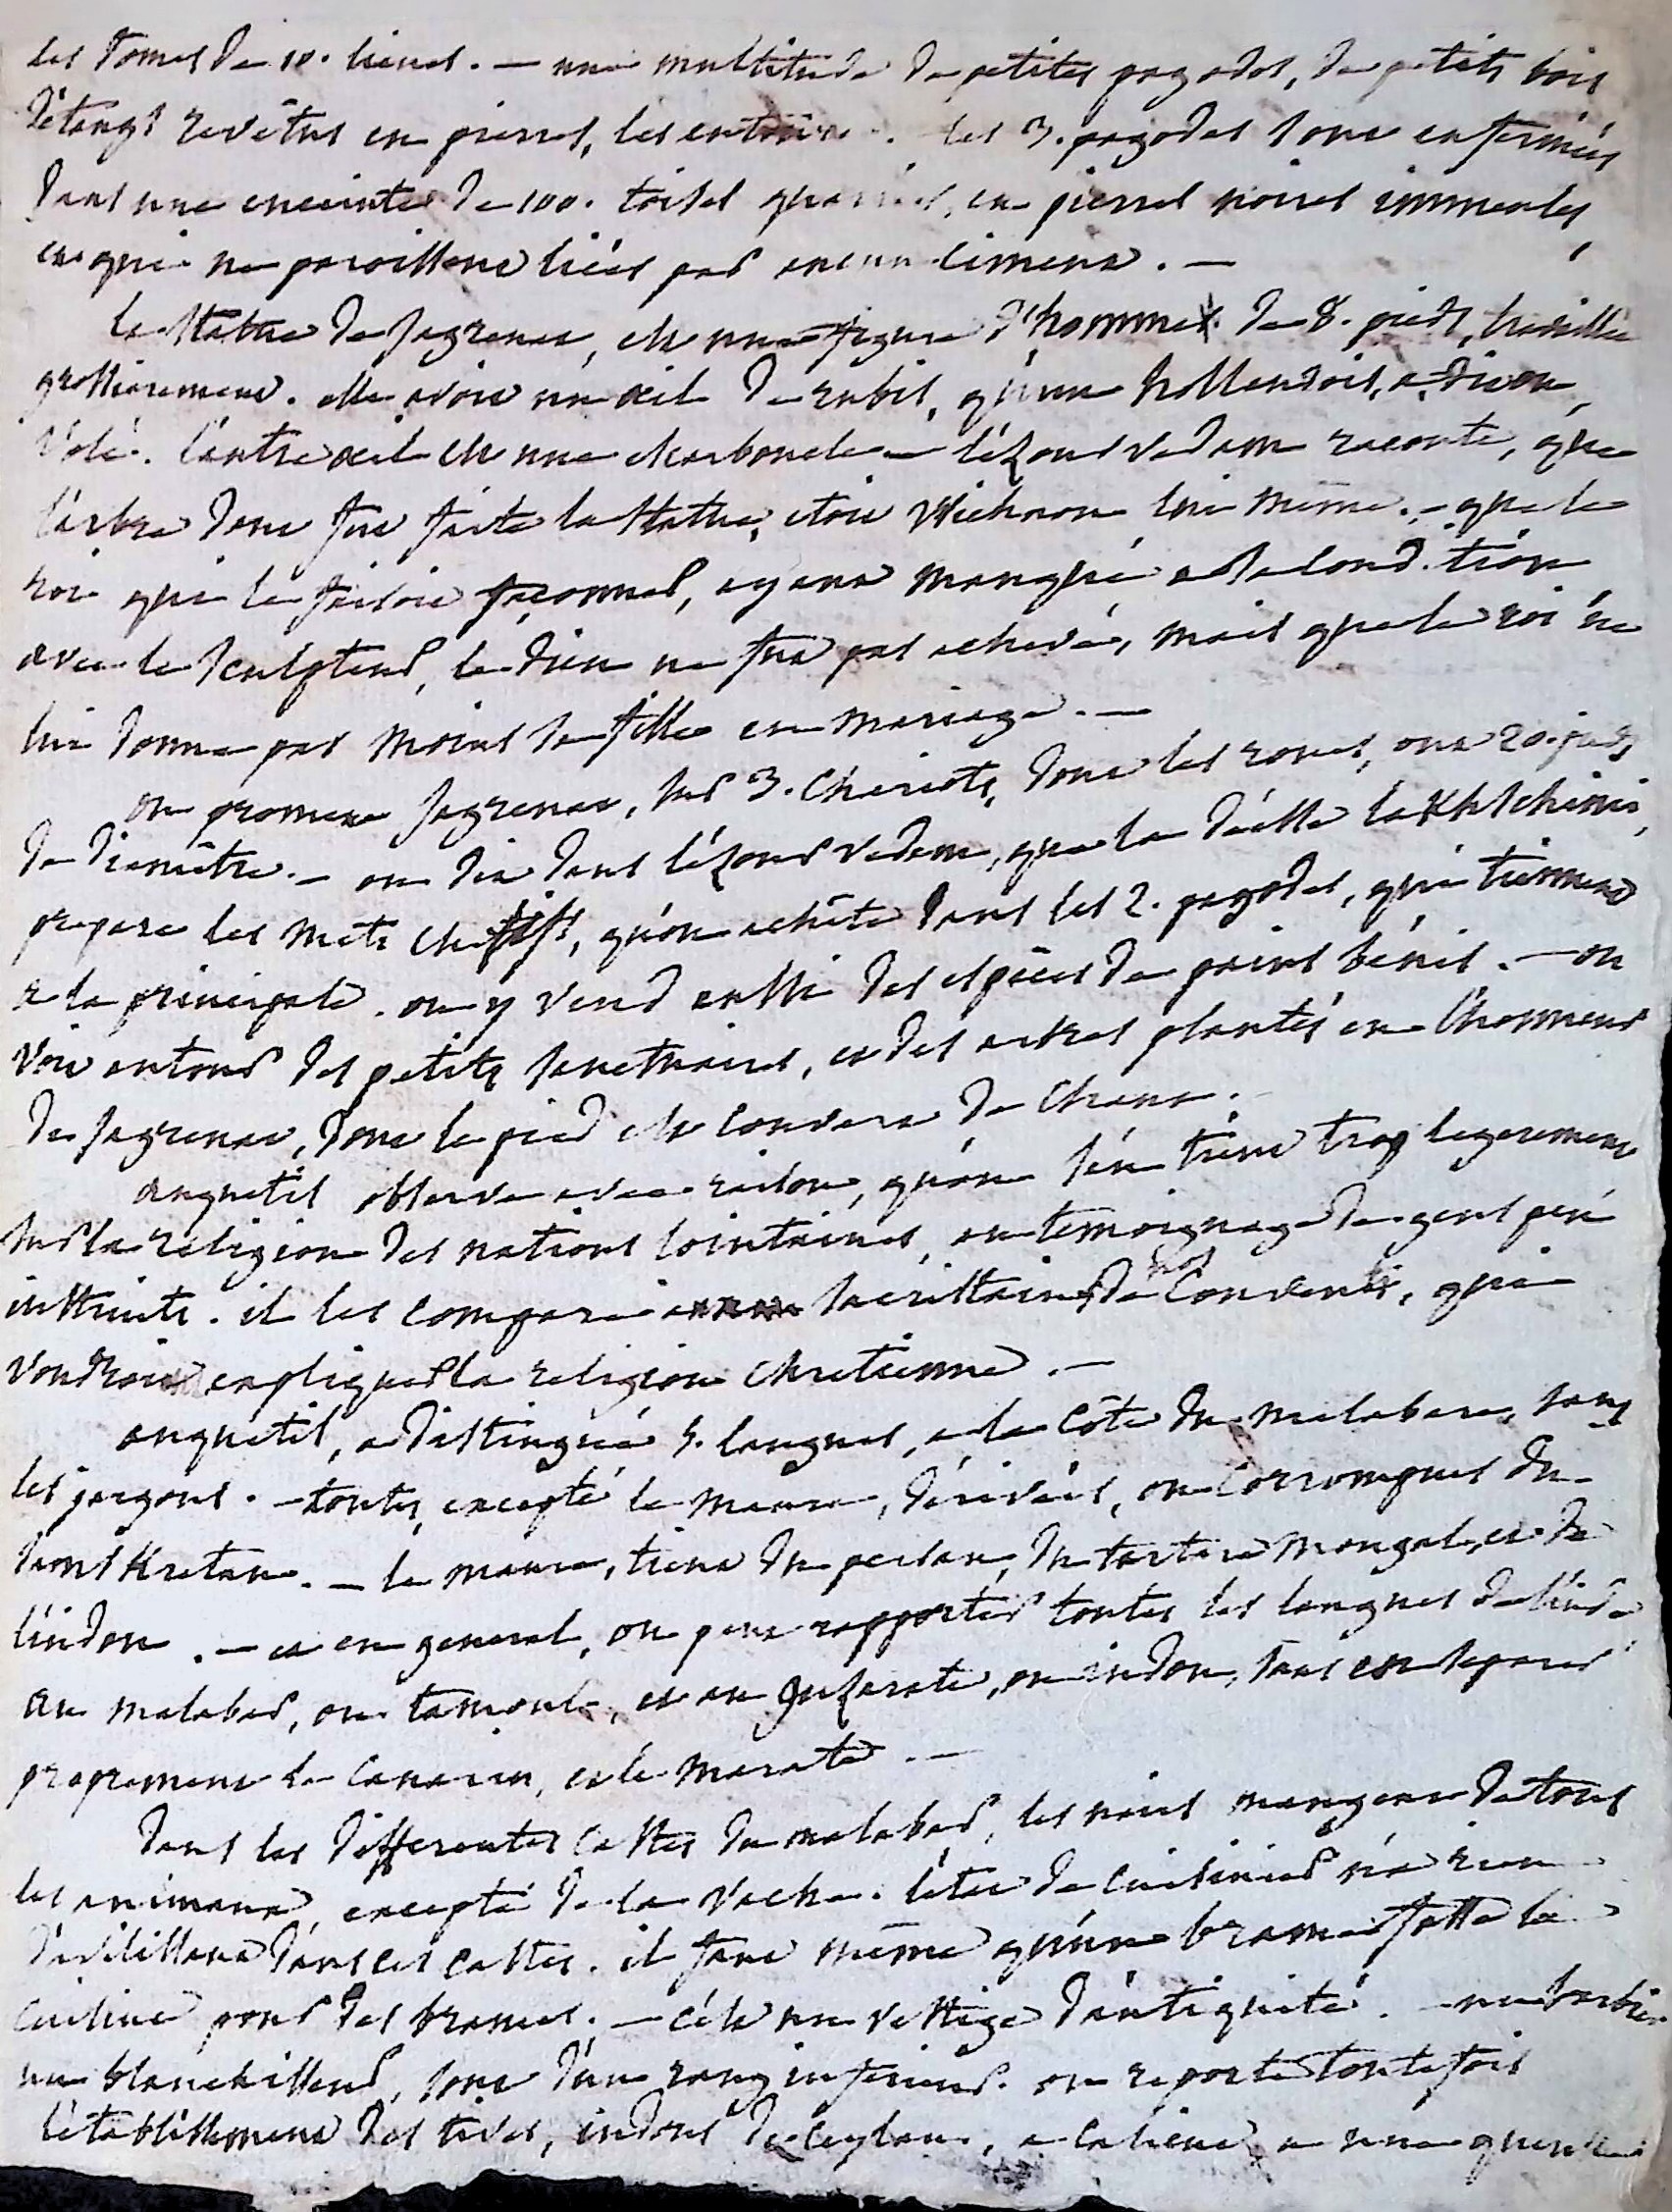 les domes de 10. lieues. — une multitude de petites pagodes, de petits bois
d'étangs revêtus en pierres, les entoure. les 3. pagodes sont enfermées
dans une enceinte de 100. toises quarrées, en pierres noires immenses,
et qui ne paroissent liées par aucun ciment. —
la statue de Jagrenat, est une figure d'homme de 8. pieds, travaillée
grossièrement. elle avoit un oeil de rubis, qu'un hollandois, a, dit on,
volé. l'autre oeil est une escarboucle — l'ézour vedam raconte, que
l'arbre dont fut faite la statue, etoit Vichnou lui même. — que le
roi qui la faisoit façonner, ayant manqué a sa condition
avec le sculpteur, le dieu ne fut pas achevé, mais que le roi ne
lui donna pas moins sa fille en mariage. —
on promene Jagrenat, sur 3. chariots, dont les roues, ont 20. pieds
de diamètre. — on dit dans l'ézour vedam, que la déesse lakhtchimi,
prepare les mets qu'on achète dans les 2. pagodes, qui tiennent
a la principale. on y vend aussi des espèces de pains bénis. — on
voit autour des petits sanctuaires, et des arbres plantés en l'honneur
de Jagrenat, dont le pied est couvert de chaux.
anquetil observe avec raison, qu'on s'en tient trop legerement
sur la religion des nations lointaines, au temoignage de gens peu
instruits. il les compare a sacristains de nos couvents, qui
voudroient expliquer la religion chretienne. —
anquetil, a distingué 5. langues, a la côte du malabare, sans
les jargons. — toutes, excepté le maure, dérivées, ou corrompues du
samskretan. — le maure, tient du persan, du tartare mongal, et de
l'indou. — et en general, on peut rapporter toutes les langues de l'inde
au malabar, ou tamoul, et au guzarate, ou indou, sans en separer
proprement le canarin, et le marate. —
dans les differentes castes du malabar, les nairs mangent de tous
les animaux, excepté de la vache. l'etat de cuisinier n'a rien
d'avilissant dans ces castes. il faut même qu'un brame fasse la
cuisine pour des brames. — c'est un vestige d'antiquité. — un barbier
un blanchisseur, sont d'un rang inferieur. on reporte toutefois
l'etablissement des tives, indous de ceylan, a calicut, a une